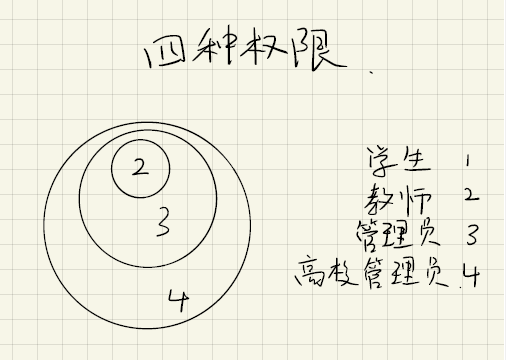 四种权限
2
3
4
学生 1
教师 2
管理员 3
高校管理员 4